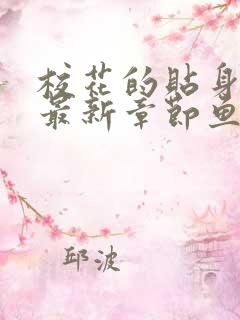 校花的贴身
最新章节鱼
邱波